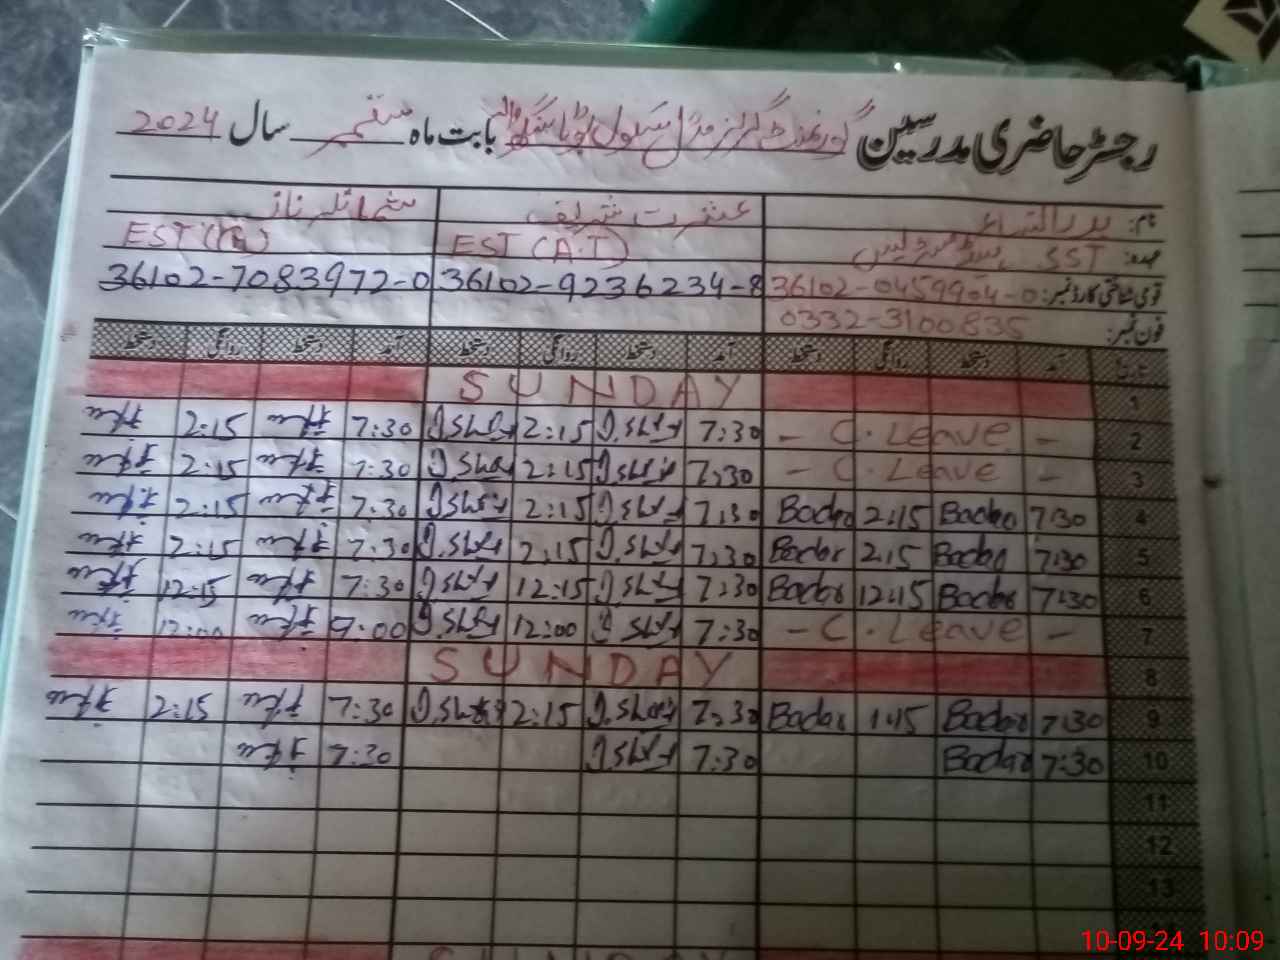 رجسٹر حاضری مدرسین گورنمنٹ گرلز مڈل سکول بوٹا سنگھ والہ بابت ماہ ستمبر سال 2024
نام: بدر النساء عشرت شریف شمائلہ ناز
عہدہ: SST ہیڈ مسٹریس EST (A.T) EST
قومی شناختی کارڈ نمبر: 36102-0459904-0 36102-9236234-8 36102-7083972-0
فون نمبر: 0332-3100835
تاریخ آمد دستخط روانگی دستخط آمد دستخط روانگی دستخط آمد دستخط روانگی دستخط
1 SUNDAY
2 - C. Leave - 7:30 2:15 7:30 2:15
3 - C. Leave - 7:30 2:15 7:30 2:15
4 7:30 Badar 2:15 Badar 7:30 2:15 7:30 2:15
5 7:30 Badar 2:15 Badar 7:30 2:15 7:30 2:15
6 7:30 Badar 12:15 Badar 7:30 12:15 7:30 12:15
7 - C. Leave - 7:30 12:00 9:00 12:00
8 SUNDAY
9 7:30 Badar 1:15 Badar 7:30 2:15 7:30 2:15
10 7:30 Badar 7:30 7:30
11
12
13
SUNDAY
10-09-24 10:09